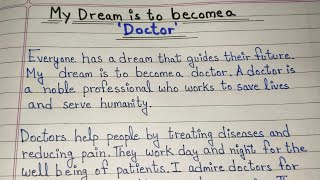 My Dream is to become a
'Doctor'
Everyone has a dream that guides their future.
My dream is to become a doctor. A doctor is
a noble professional who works to save lives
and serve humanity.
Doctors help people by treating diseases and
reducing pain. They work day and night for the
well being of patients. I admire doctors for